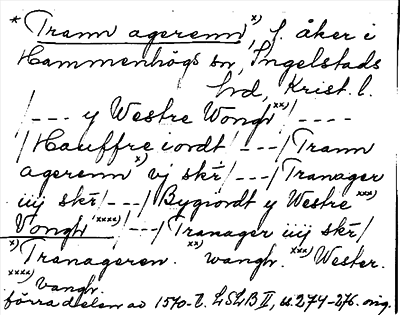 * Trann agerenn x), f. åker i
Hammenhögs sn, Ingelstads
hd, Krist. l.
/--- y Westre Wongh xx)/----
/Hauffre iordt/---/Trann
agerenn x) vj skr̄/---/Tranager
iiij skr̄/---/Bygiordt y Westre xxx)
Vongh xxxx)/---/Tranager iiij skr̄/
x) Tranageren. xx) wangh. xxx) Wester.
xxxx) Vangh.
förra delen av 1570-t. LSLB II, ss. 274-276. orig.